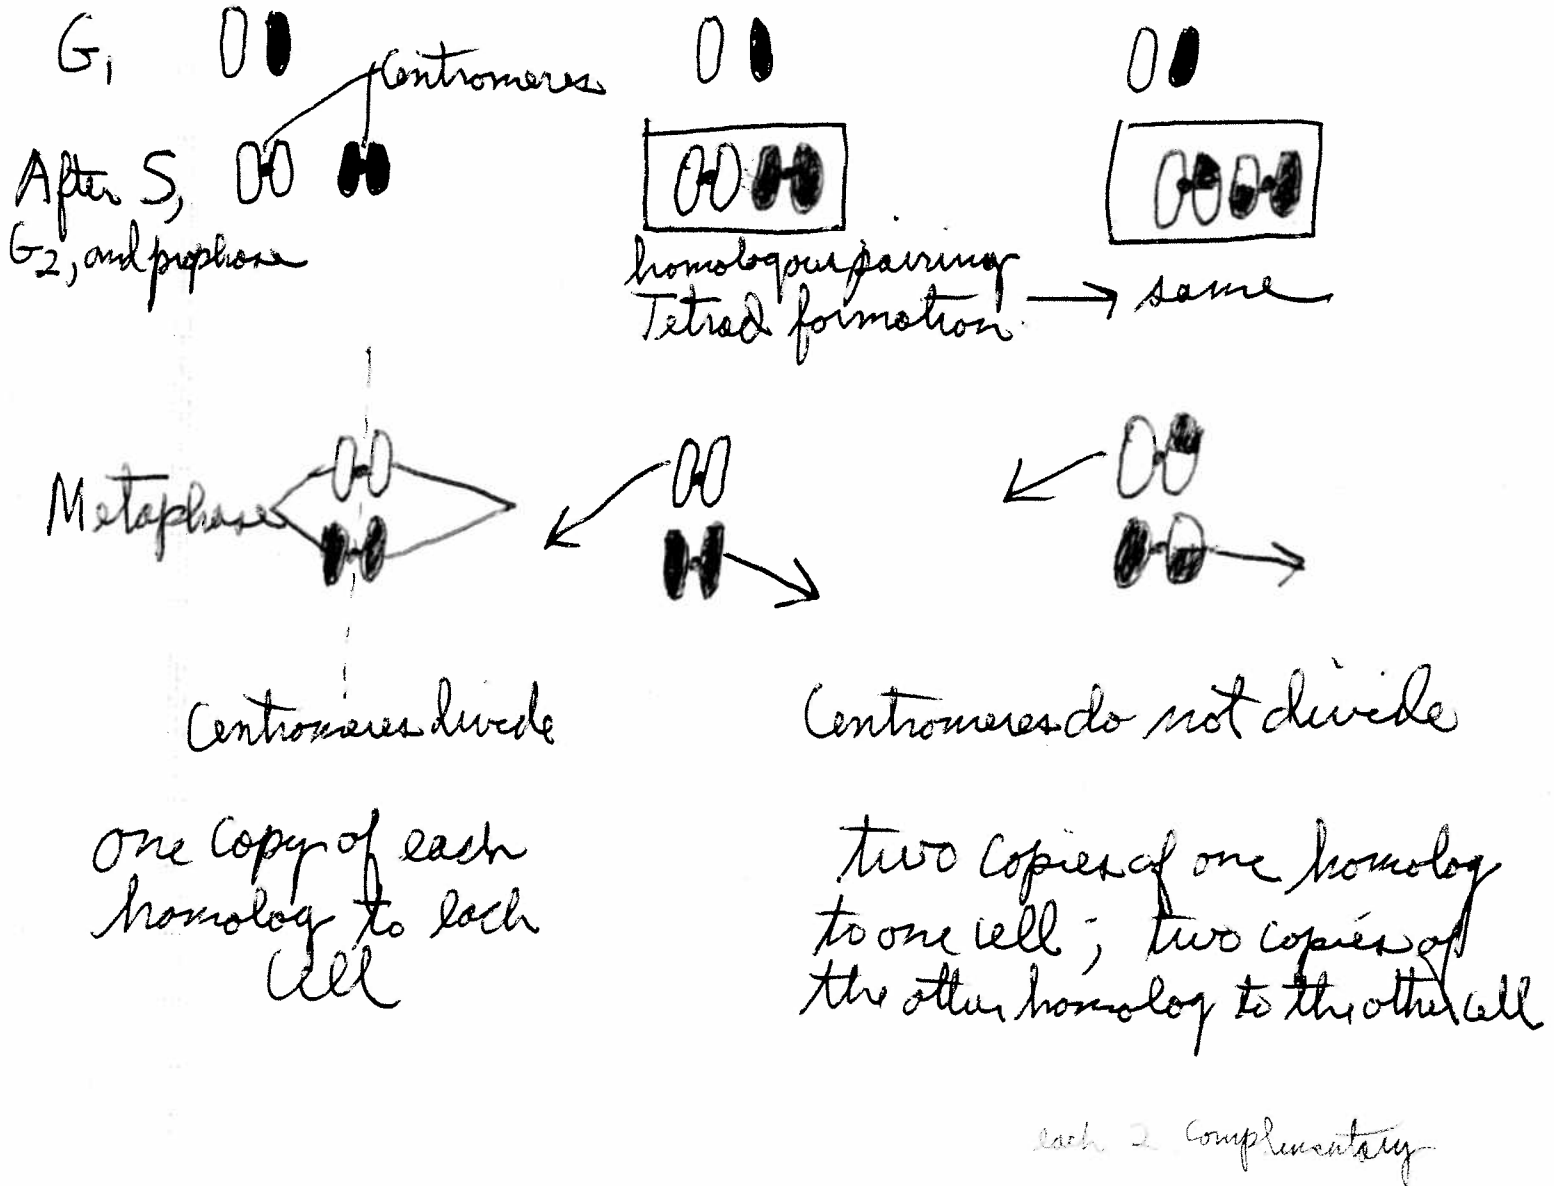 G1
Centromeres
After S,
G2, and prophase
homologous pairing
Tetrad formation → same
Metaphase
Centromeres divide
Centromeres do not divide
one copy of each
homolog to each
cell
two copies of one homolog
to one cell; two copies of
the other homolog to the other cell
each 2 complementary